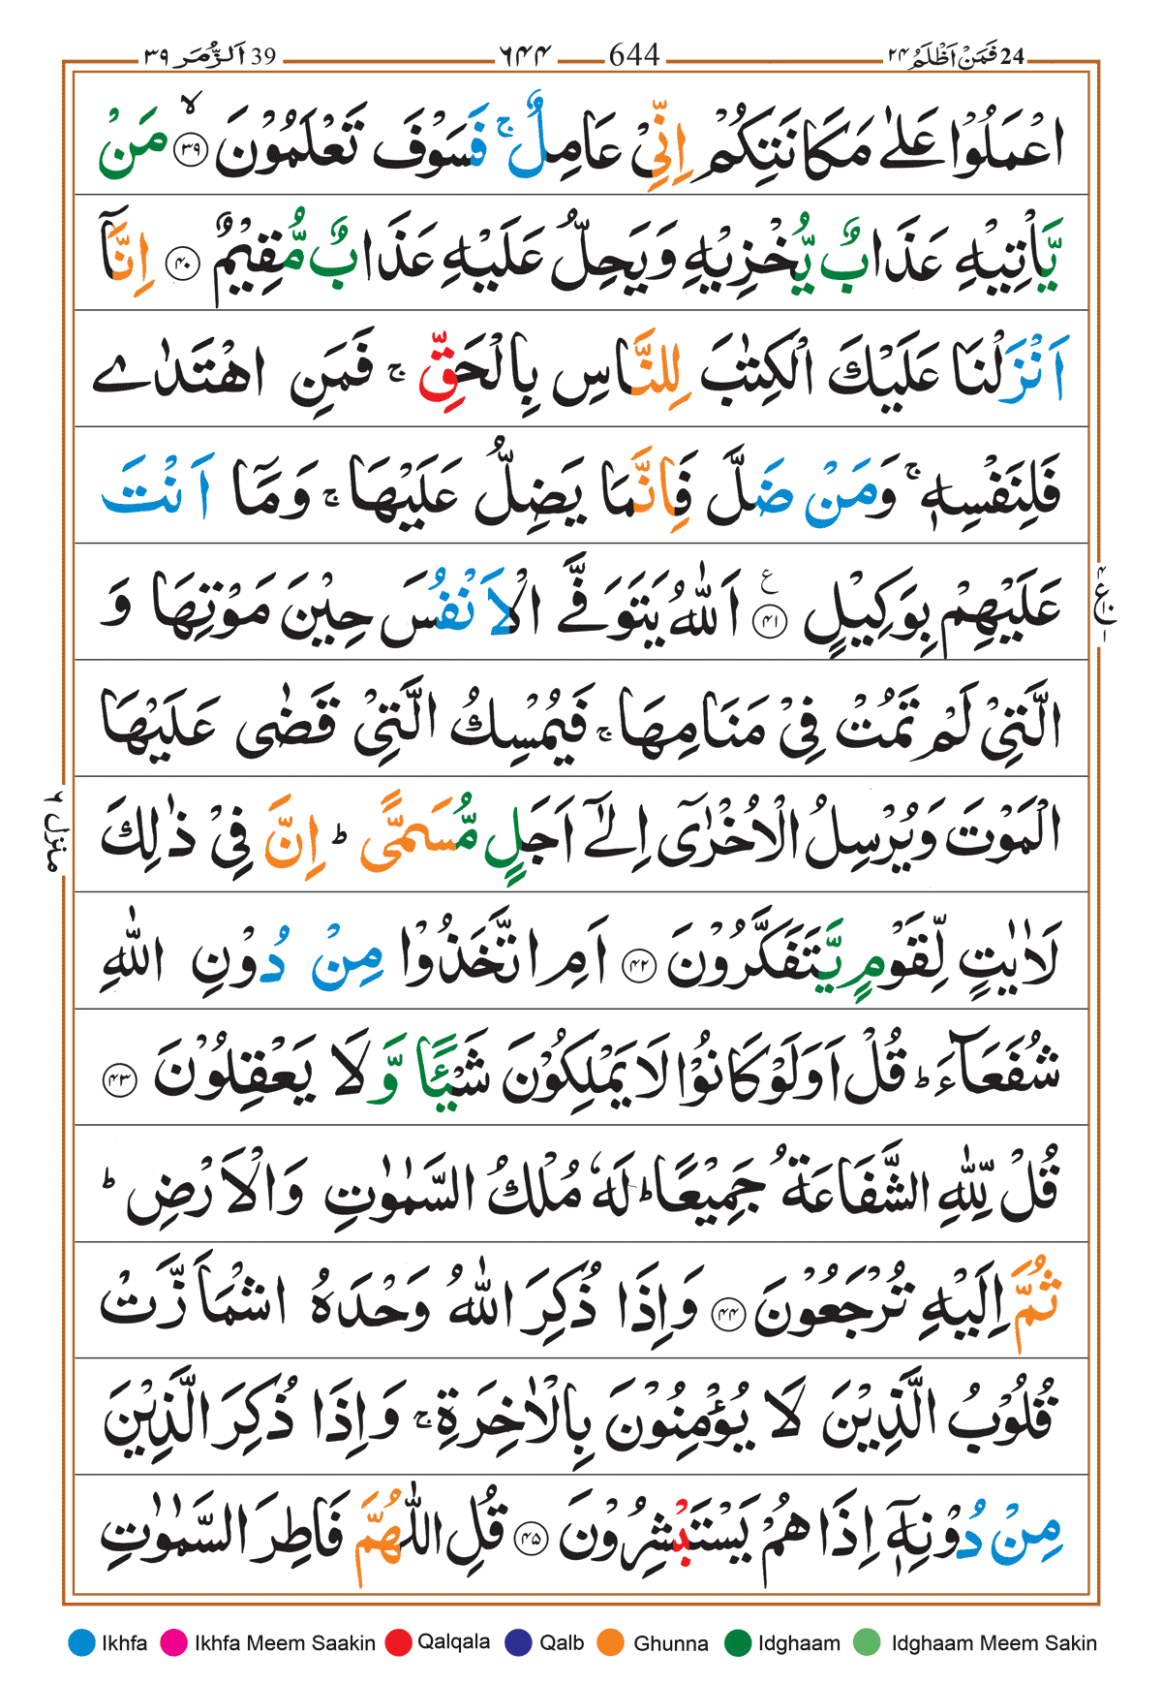 24 فَمَنْ اَظْلَمُ ٢٤ 644 ٦٤٤ 39 اَلزُّمَر ٣٩
اعْمَلُوْا عَلٰى مَكَانَتِكُمْ اِنِّىْ عَامِلٌ ۚ فَسَوْفَ تَعْلَمُوْنَ ۙ ٣٩ مَنْ
يَّاْتِيْهِ عَذَابٌ يُّخْزِيْهِ وَيَحِلُّ عَلَيْهِ عَذَابٌ مُّقِيْمٌ ٤٠ اِنَّاۤ
اَنْزَلْنَا عَلَيْكَ الْكِتٰبَ لِلنَّاسِ بِالْحَقِّ ۚ فَمَنِ اهْتَدٰى
فَلِنَفْسِهٖ ۚ وَمَنْ ضَلَّ فَاِنَّمَا يَضِلُّ عَلَيْهَا ۚ وَمَاۤ اَنْتَ
عَلَيْهِمْ بِوَكِيْلٍ ٤١ ع اَللّٰهُ يَتَوَفَّى الْاَنْفُسَ حِيْنَ مَوْتِهَا وَ
الَّتِىْ لَمْ تَمُتْ فِىْ مَنَامِهَا ۚ فَيُمْسِكُ الَّتِىْ قَضٰى عَلَيْهَا
الْمَوْتَ وَيُرْسِلُ الْاُخْرٰٓى اِلٰٓى اَجَلٍ مُّسَمًّى ؕ اِنَّ فِىْ ذٰلِكَ
لَاٰيٰتٍ لِّقَوْمٍ يَّتَفَكَّرُوْنَ ٤٢ اَمِ اتَّخَذُوْا مِنْ دُوْنِ اللّٰهِ
شُفَعَآءَ ؕ قُلْ اَوَلَوْ كَانُوْا لَا يَمْلِكُوْنَ شَيْـًٔا وَّلَا يَعْقِلُوْنَ ٤٣
قُلْ لِّلّٰهِ الشَّفَاعَةُ جَمِيْعًا ؕ لَهٗ مُلْكُ السَّمٰوٰتِ وَالْاَرْضِ ؕ
ثُمَّ اِلَيْهِ تُرْجَعُوْنَ ٤٤ وَاِذَا ذُكِرَ اللّٰهُ وَحْدَهُ اشْمَاَزَّتْ
قُلُوْبُ الَّذِيْنَ لَا يُؤْمِنُوْنَ بِالْاٰخِرَةِ ۚ وَاِذَا ذُكِرَ الَّذِيْنَ
مِنْ دُوْنِهٖۤ اِذَا هُمْ يَسْتَبْشِرُوْنَ ٤٥ قُلِ اللّٰهُمَّ فَاطِرَ السَّمٰوٰتِ
منزل ٦
Ikhfa Ikhfa Meem Saakin Qalqala Qalb Ghunna Idghaam Idghaam Meem Sakin